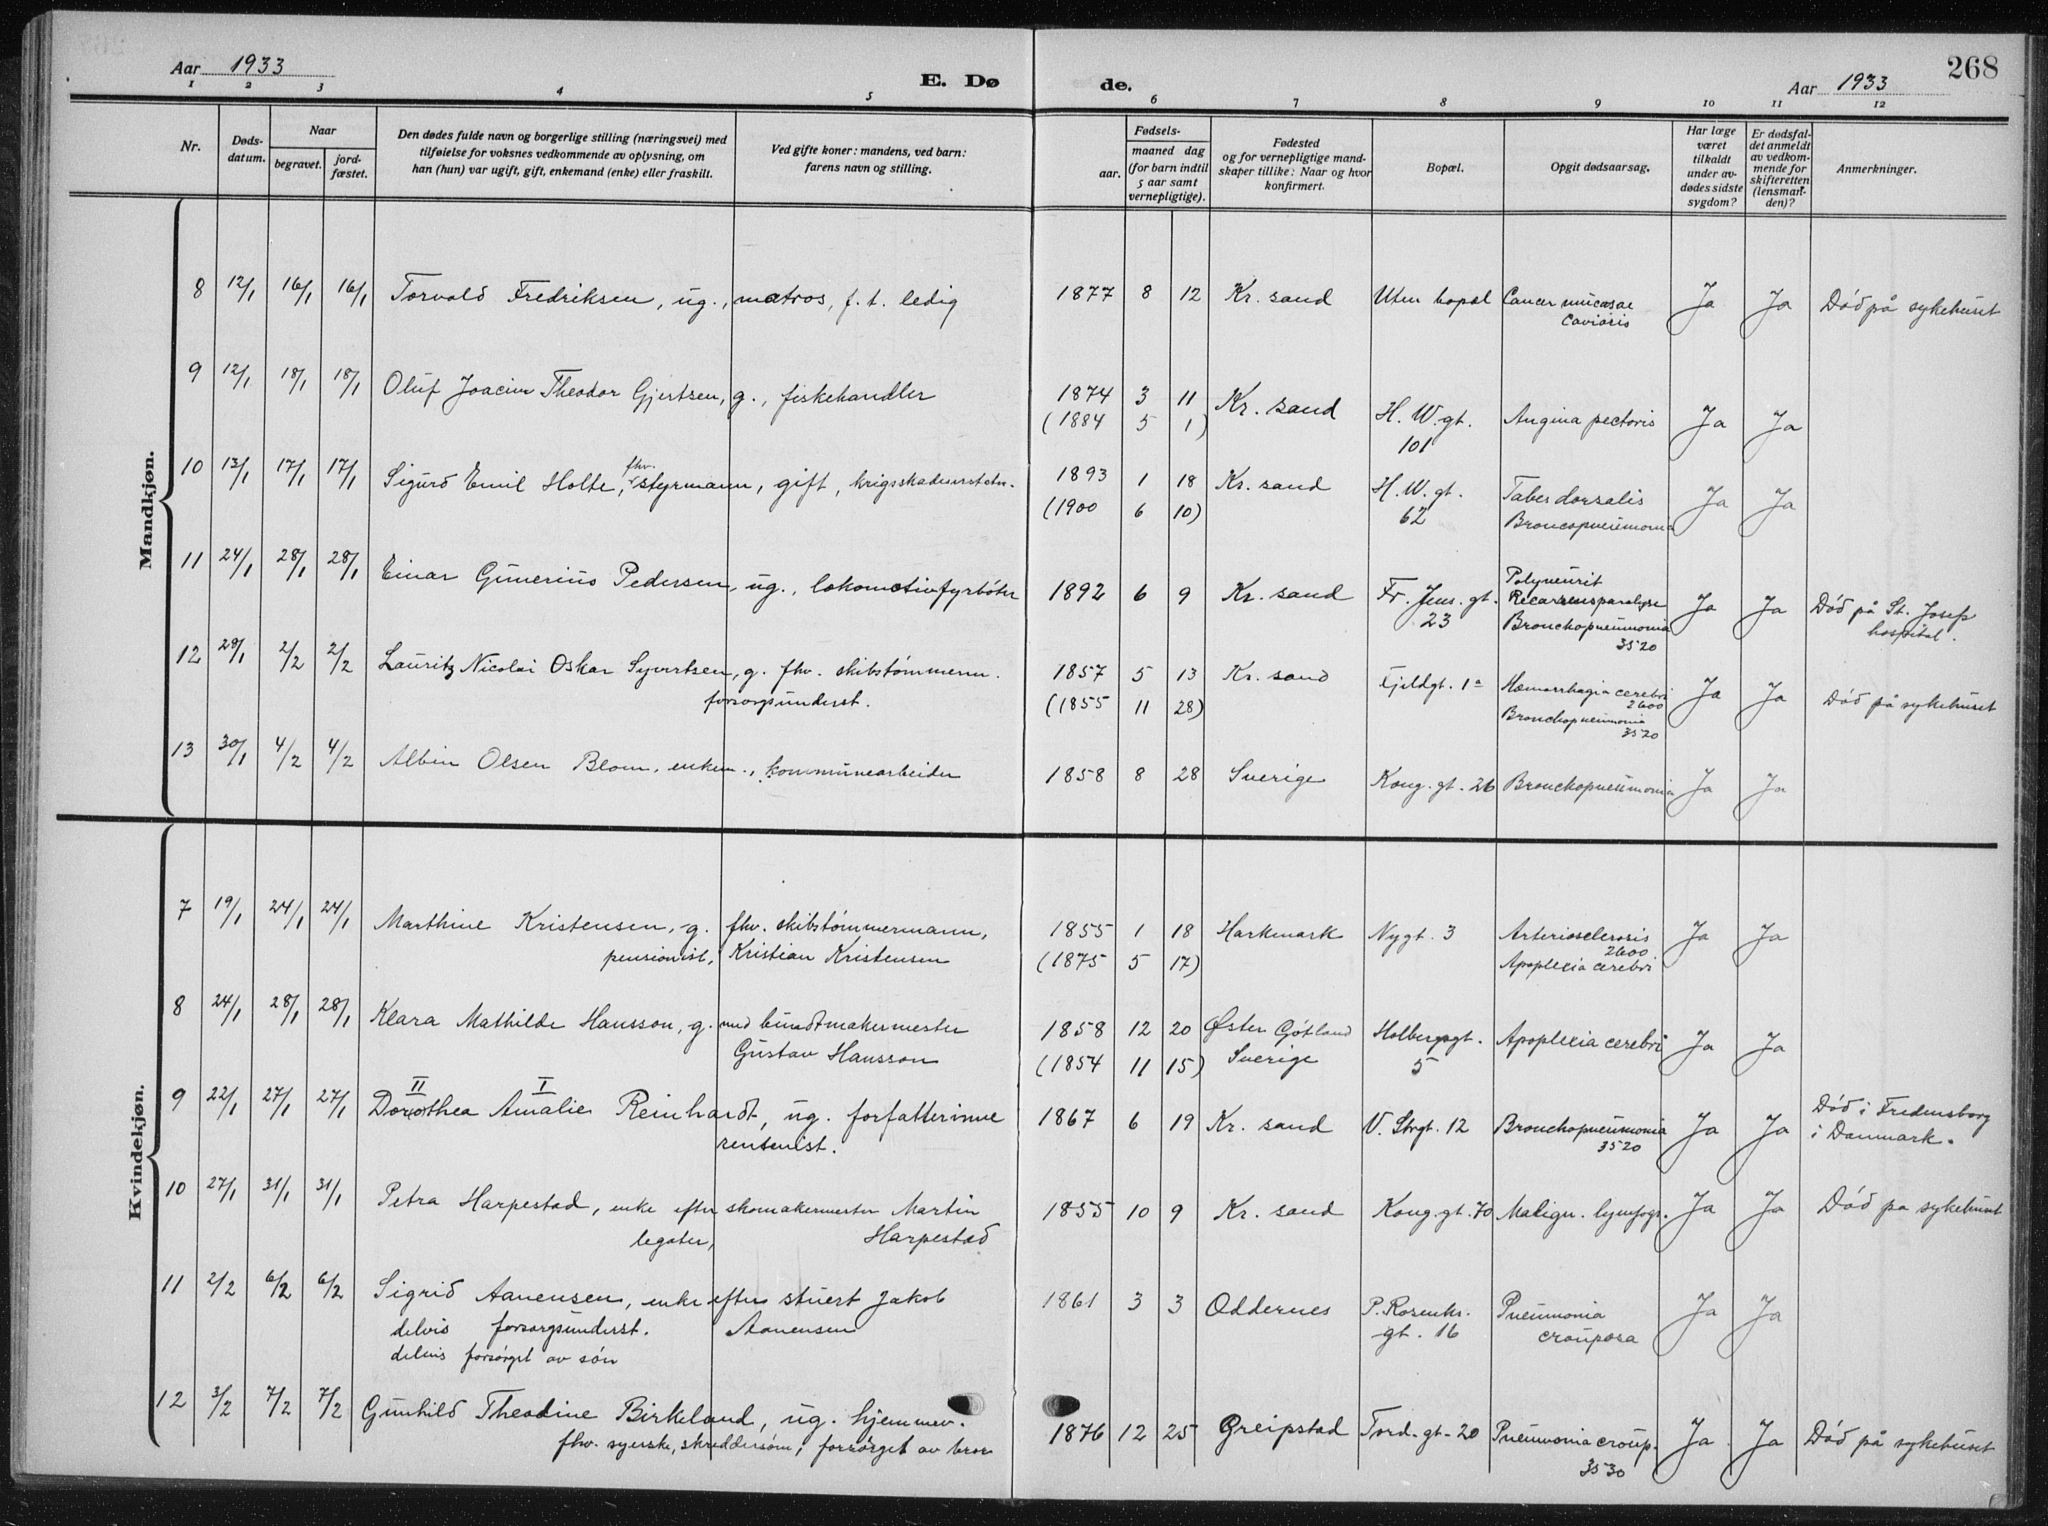 268
Aar 1933
E. Døde.
Aar 1933
1 2 3 4 5 6 7 8 9 10 11 12
Nr.
Døds-datum.
Naar
begravet.
jord-fæstet.
Den dødes fulde navn og borgerlige stilling (næringsvei) med
tilføielse for voksnes vedkommende av oplysning, om
han (hun) var ugift, gift, enkemand (enke) eller fraskilt.
Ved gifte koner: mandens, ved barn:
farens navn og stilling.
Fødsels-
aar.
maaned dag
(for barn indtil
5 aar samt
vernepligtige).
Fødested
og for vernepligtige mand-
skaper tillike: Naar og hvor
konfirmert.
Bopæl.
Opgit dødsaarsag.
Har læge
været
tilkaldt
under av-
dødes sidste
sygdom?
Er dødsfal-
det anmeldt
av vedkom-
mende for
skifteretten
(lensman-
den)?
Anmerkninger.
Mandkjøn.
8 12/1 16/1 16/1 Torvald Fredriksen, ug., matros, f. t. ledig 1877 8 12 Kr. sand Uten bopæl Cancer mucosae Ja Ja Død på sykehuset
9 12/1 18/1 18/1 Oluf Joacim Theodor Gjertsen, g., fiskehandler 1874 3 11 Kr. sand H. W. gt. Angina pectoris Ja Ja
(1884 5 1) 101
10 13/1 17/1 17/1 Sigurd Emil Holte, fhv. styrmann, gift, 1893 1 18 Kr. sand H. W. gt. Tabes dorsalis Ja Ja
(1900 6 10) 62 Broncopneumonia
11 24/1 28/1 28/1 Einar Gunerius Pedersen, ug., lokomotivfyrbøter 1892 6 9 Kr. sand Fr. Jens. gt. Polyneurit Ja Ja Død på St. Josep
23 Recurrensparalyse hospital.
Bronchopneumonia
3520
12 29/1 2/2 2/2 Lauritz Nicolai Oskar Syvertsen, g. fhv. skibstømmerm. 1857 5 13 Kr. sand Fjeldgt. 1a Hæmorrhagia cerebri Ja Ja Død på sykehuset
forsorgsunderst. (1855 11 28) 2600
Bronchopneumonia
3520
13 30/1 4/2 4/2 Albin Olsen Blom, enkem., kommunearbeider 1858 8 28 Sverige Kong. gt. 26 Bronchopneumonia Ja Ja
Kvindekjøn.
7 19/1 24/1 24/1 Marthine Kristensen, g. fhv. skibstømmermann, 1855 1 18 Harkmark Nygt. 3 Arteriosclerosis Ja Ja
pensionist, Kristian Kristensen (1875 5 17) 2600
Apoplexia cerebri
8 24/1 28/1 28/1 Klara Mathilde Hansson, g. med bundtmakermester 1858 12 20 Øster Gøtland Holbergsgt. Apoplexia cerebri Ja Ja
Gustav Hansson (1854 11 15) Sverige 5
II I
9 22/1 27/1 27/1 Dorothea Amalie Reinhardt, ug. forfatterinne 1867 6 19 Kr. sand V. Strgt. 12 Bronchopneumonia Ja Ja Død i Fredensborg
rentenist. 3520 i Danmark.
10 27/1 31/1 31/1 Petra Harpestad, enke efter skomakermester Martin 1855 10 9 Kr. sand Kong. gt. 70 Malign. lymfogr. Ja Ja Død pa sykehuset
legater, Harpestad
11 2/2 6/2 6/2 Sigrid Aanensen, enke efter stuert Jakob 1861 3 3 Oddernes P. Rosenkr. Pneumonia Ja Ja
delvis forsorgsunderst. Aanensen gt. 16 crouposa
delvis forsørget av søn
12 3/2 7/2 7/2 Gunhild Theodine Birkeland, ug. hjemmev. 1876 12 25 Greipstad Tord. gt. 20 Pneumonia croup. Ja Ja Død på sykehuset
fhv. syerske, skreddersøm; forsørget av bror 3530